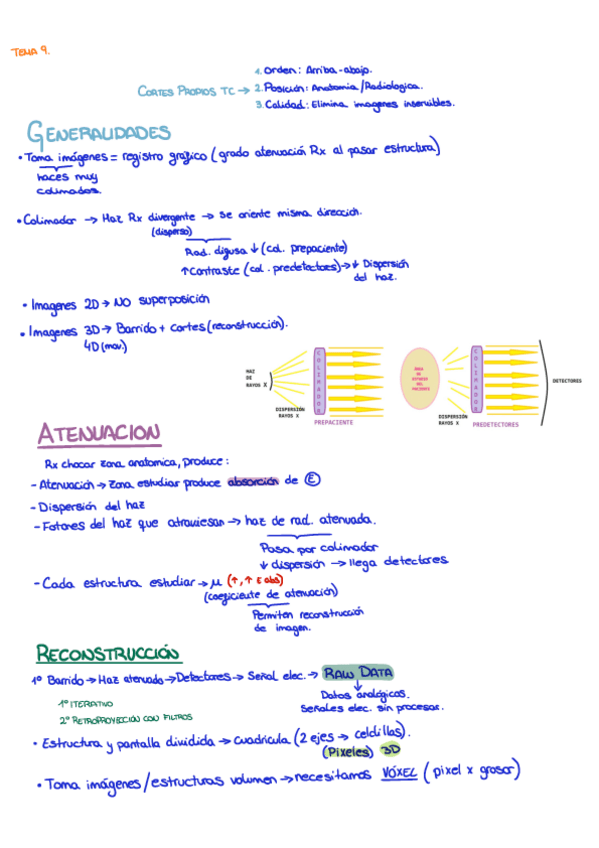 TEMA 9.
1. Orden: Arriba-abajo.
CORTES PROPIOS TC → 2. Posición: Anatomia/Radiologica.
3. Calidad: Elimina imagenes inservibles.
GENERALIDADES
• Toma imágenes = registro gráfico (grado atenuación Rx al pasar estructura)
haces muy
colimados.
• Colimador → Haz Rx divergente → se oriente misma dirección.
(disperso)
Rad. difusa ↓ (col. prepaciente)
↑ Contraste (col. predetectores) → ↓ Dispersión
del haz.
• Imagenes 2D → NO superposición
• Imagenes 3D → Barrido + cortes (reconstrucción).
4D (mov.)
HAZ
DE
RAYOS X
DISPERSIÓN
RAYOS X
COLIMADOR
PREPACIENTE
DISPERSIÓN
RAYOS X
COLIMADOR
PREDETECTORES
DETECTORES
ATENUACION
Rx chocar zona anatomica, produce:
- Atenuación → zona estudiar produce absorción de E
- Dispersión del haz
- Fotones del haz que atraviesan → haz de rad. atenuada.
Pasa por colimador
↓ dispersión → llega detectores
- Cada estructura estudiar → μ (↑, ↑ E abs)
(coeficiente de atenuación)
Permiten reconstrucción
de imagen.
RECONSTRUCCIÓN
1º Barrido → Haz atenuado → Detectores → Señal elec. → RAW DATA
Datos analógicos.
Señales elec. sin procesar.
1º ITERATIVO
2º RETROPROYECCIÓN CON FILTROS
• Estructura y pantalla dividida → cuadrícula (2 ejes → celdillas).
(Pixeles) 3D
• Toma imágenes/estructuras volumen → necesitamos VÓXEL (pixel x grosor)